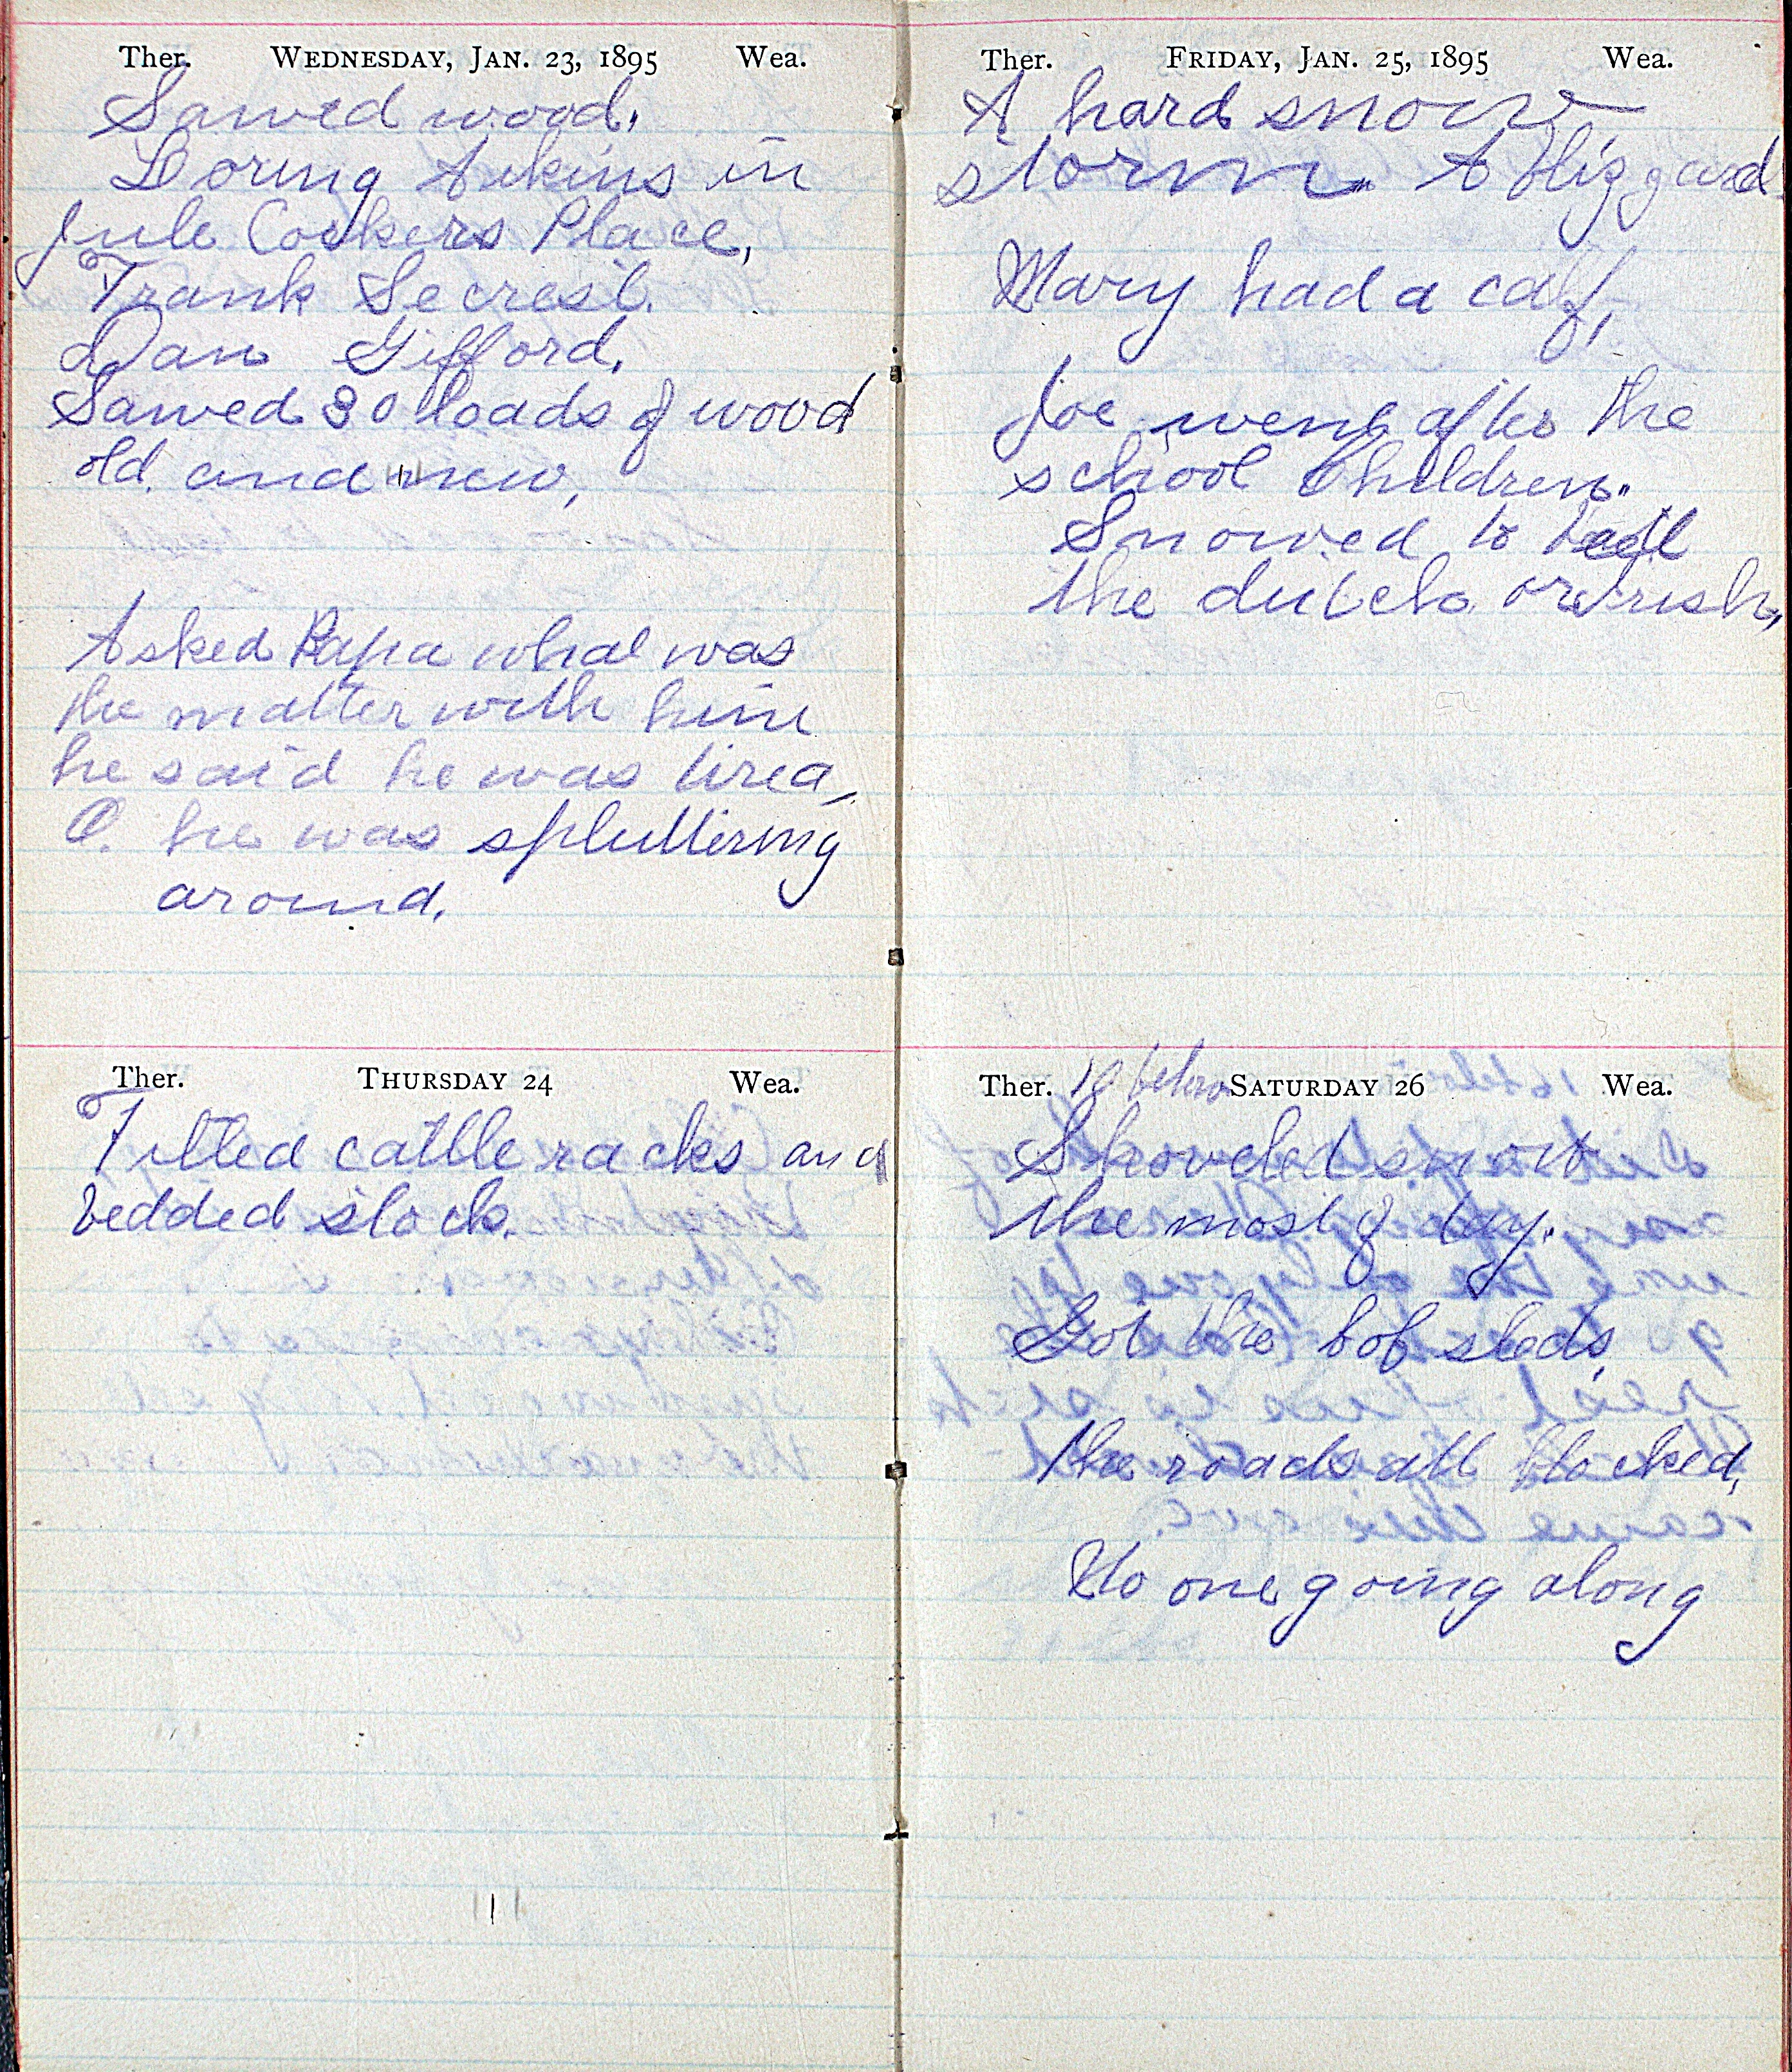 Ther. WEDNESDAY, JAN. 23, 1895 Wea.
Sawed wood.
Loring Aikins in
Jule Cookers Place,
Frank Secrest.
Dan Gifford.
Sawed 30 loads of wood
old and new,
Asked Papa what was
the matter with him
he said he was tired,
O. he was spluttering
around.
Ther. THURSDAY 24 Wea.
Filled cattle racks and
bedded stock.
Ther. FRIDAY, JAN. 25, 1895 Wea.
A hard snow
storm. A blizzard.
Mary had a calf,
Joe went after the
school children.
Snowed to beat
the dutch or Irish,
Ther. 10 below SATURDAY 26 Wea.
Shoveled snow
the most of day.
Got the bob sleds,
The roads all blocked,
No one going along